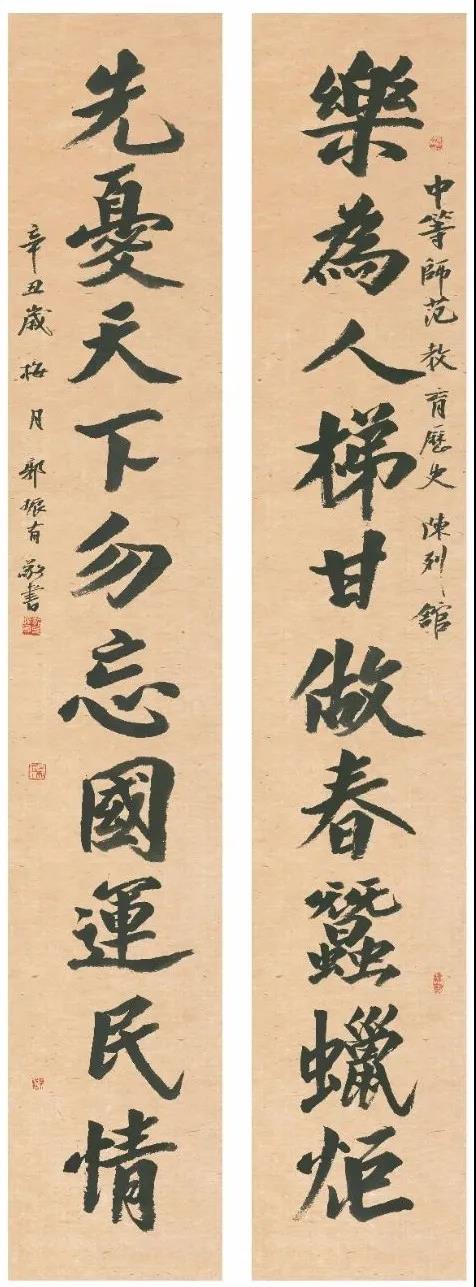 中等師范教育歷史陳列館
樂為人梯甘做春蠶蠟炬
先憂天下勿忘國運民情
辛丑歲梅月郭振有敬書